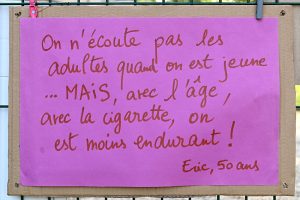 On n'écoute pas les
adultes quand on est jeune
... MAIS, avec l'âge,
avec la cigarette, on
est moins endurant !
Eric, 50 ans